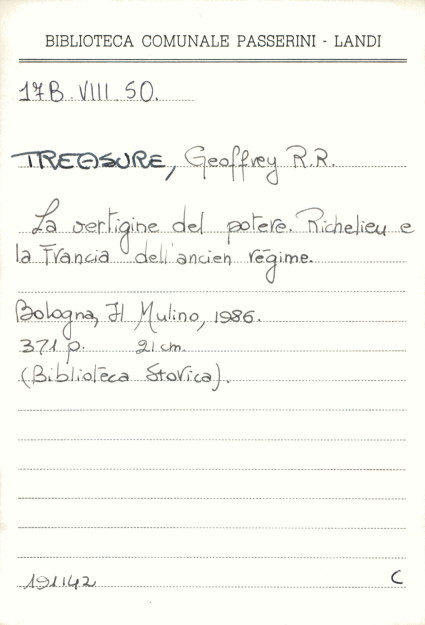 BIBLIOTECA COMUNALE PASSERINI - LANDI
17B. VIII. 50.
TREASURE, Geoffrey R.R.
La vertigine del potere. Richelieu e
la Francia dell'ancien régime.
Bologna, Il Mulino, 1986.
371 p. 21 cm.
(Biblioteca Storica).
191142 C